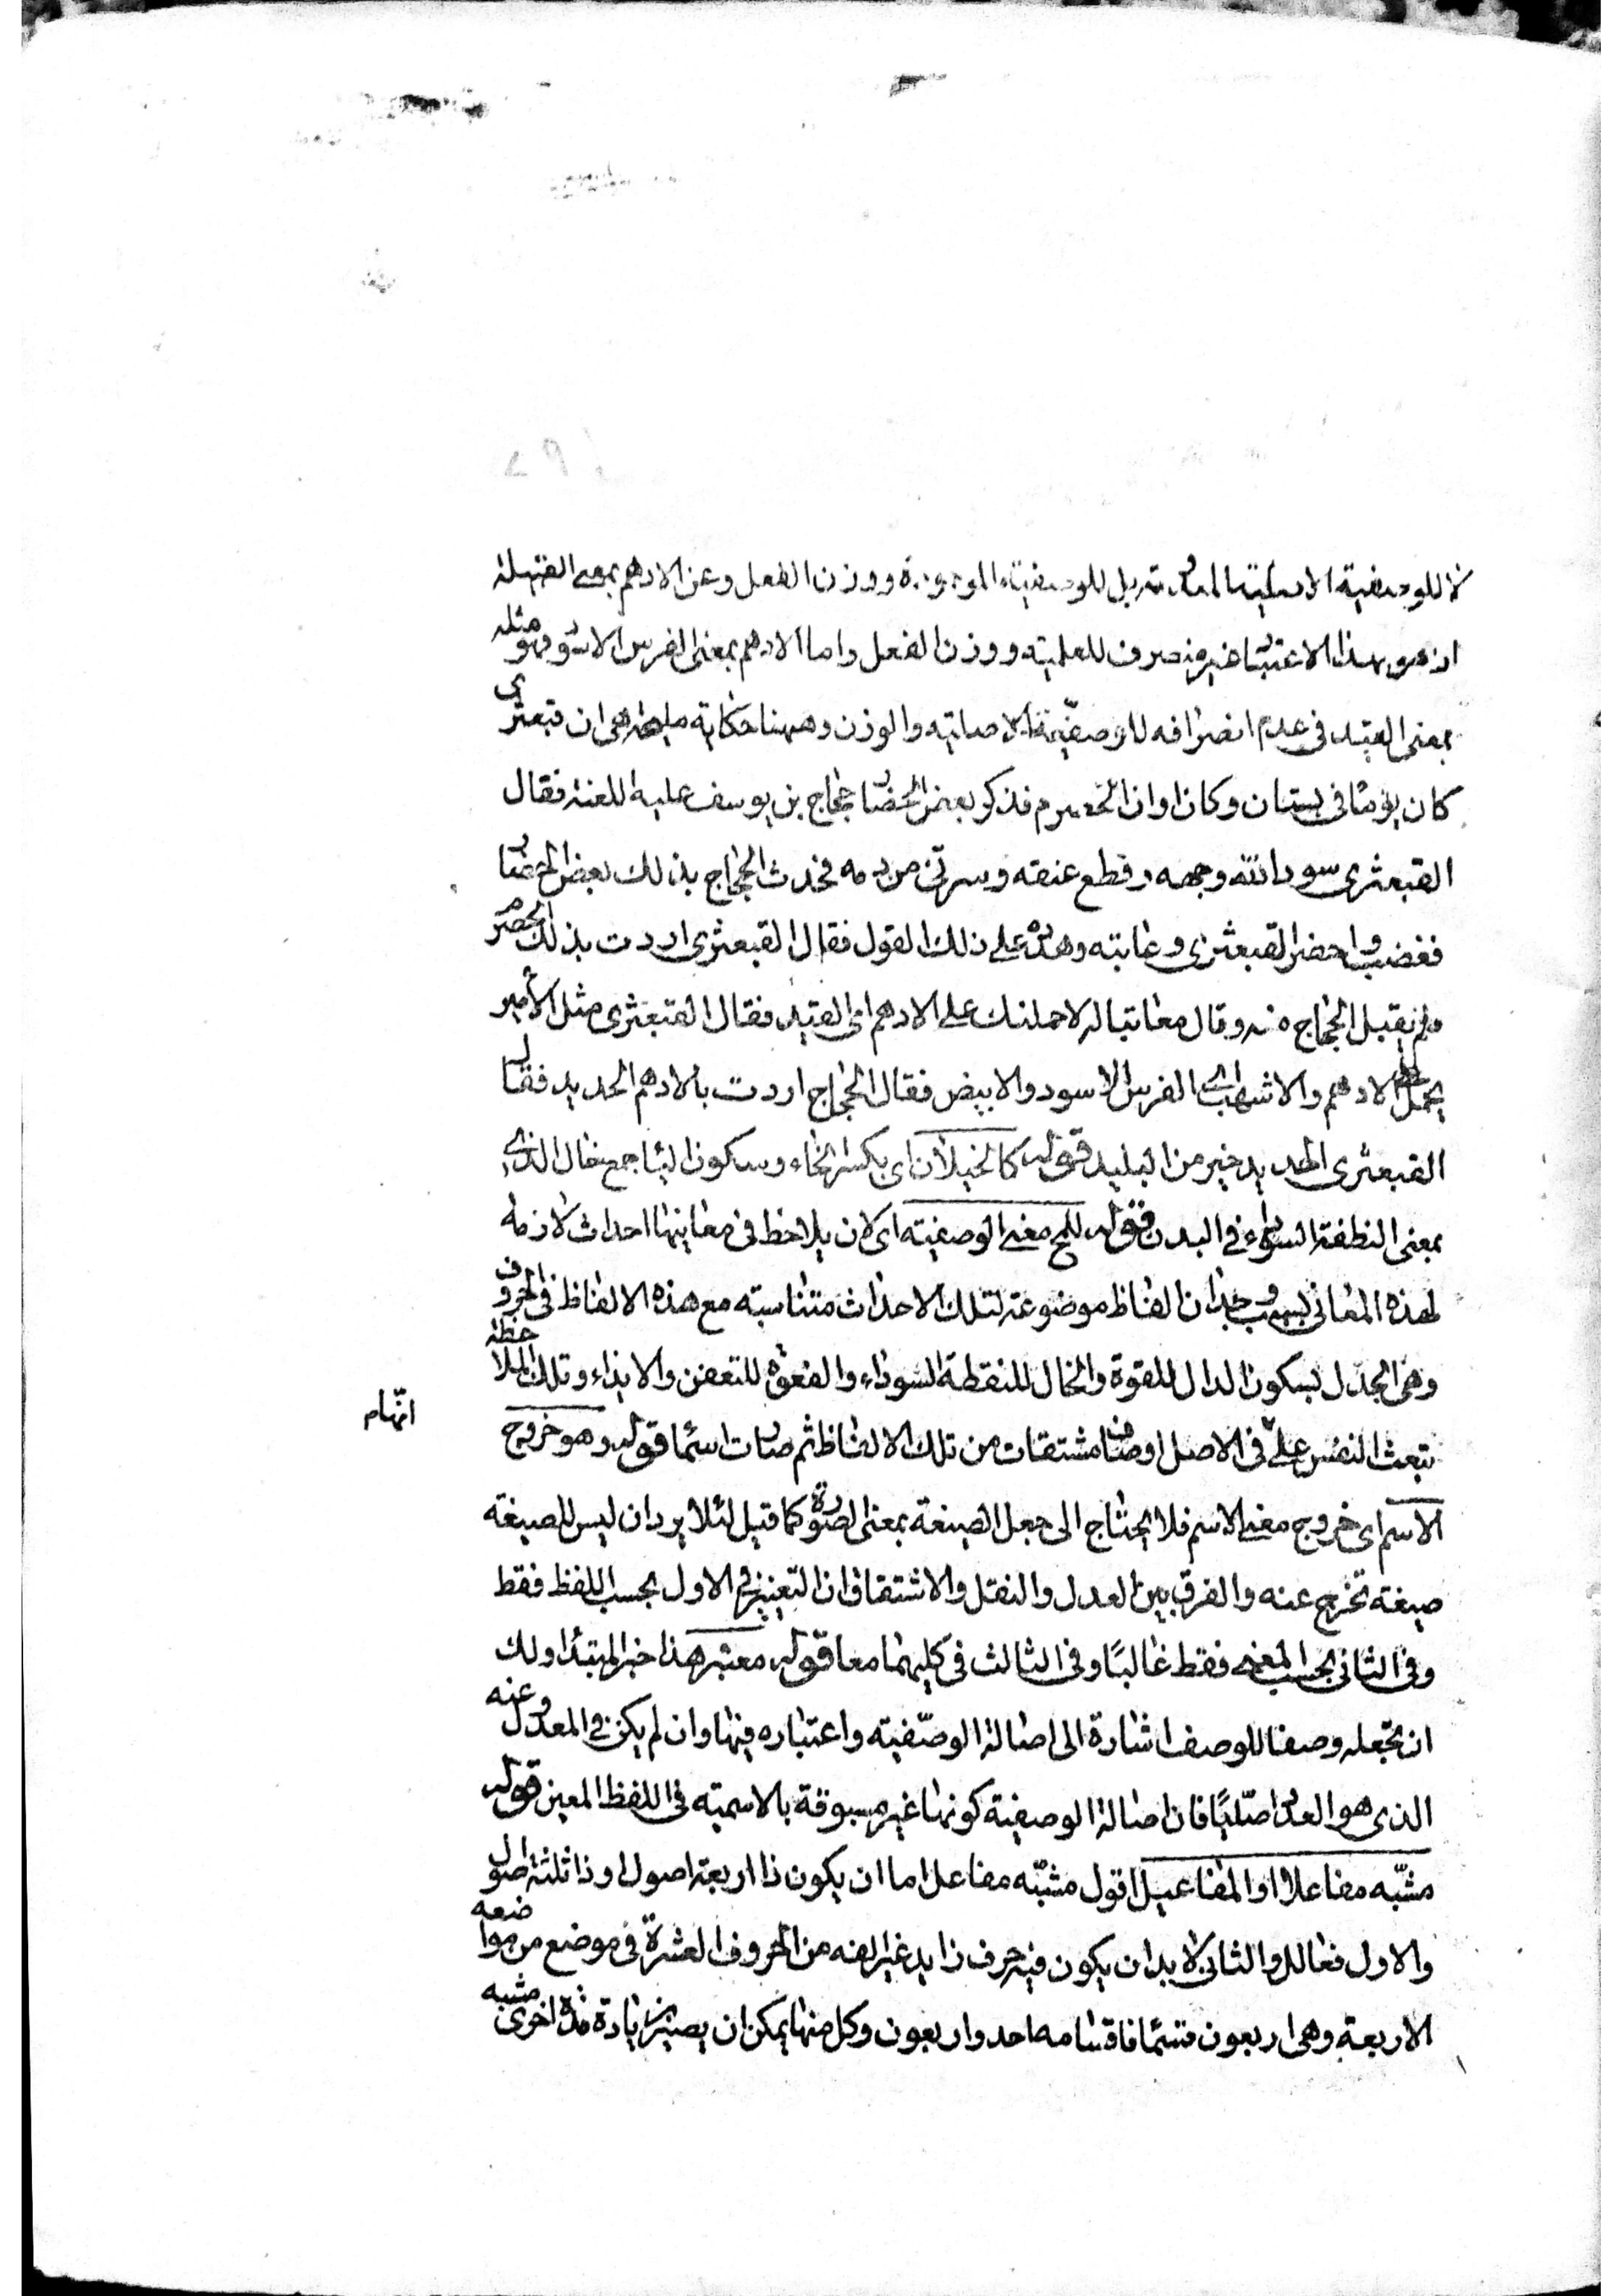 لا للوصفية الاصلية بل للوصفية الموجودة ووزن الفعل وعن الادهم بمعنى
اذ هو بهذا الاعتبار غير منصرف للعلمية ووزن الفعل واما الادهم بمعنى الفرس الاسود فهو مثله
بمعنى القيد فى عدم انصرافه للوصفية الاصلية والوزن وههنا حكاية هى ان قبعثرى
كان يوما فى بستان وكان اوان الحصرم فذكر بعض الحضار حجاج بن يوسف عليه اللعنة فقال
القبعثرى سود الله وجهه وقطع عنقه وسقانى من دمه فحدث الحجاج بذلك بعض الحضار
فغضب واحضر القبعثرى وعاتبه وهدده على ذلك القول فقال القبعثرى اردت بذلك الحصرم
ولم يقبل الحجاج منه وقال معاتبا له لاحملنك على الادهم اى القيد فقال القبعثرى مثل الأمير
يحمل على الادهم والاشهب اى الفرس الاسود والابيض فقال الحجاج اردت بالادهم الحديد فقال
القبعثرى الحديد خير من البليد قوله كالخيلان اى بكسر الخاء وسكون الياء جمع خال الذى
بمعنى النطفة السوداء فى البدن قوله للمح معنى الوصفية اى لان يلاحظ فى معانيها احداث لازمة
لهذه المعانى بسبب وجدان الفاظ موضوعة لتلك الاحداث متناسبة مع هذه الالفاظ فى الحروف
وهى الجدل بسكون الدال للقوة والخال للنقطة السوداء والفعوة للتعفن والايذاء وتلك الملاحظة
تبعث النفس على فى الاصل اوصافا مشتقات من تلك الالفاظ ثم صارت اسما قوله وهو خروج
انها
الاسم اى خروج معنى الاسم فلا يحتاج الى جعل الصيغة بمعنى الصورة كما قيل لئلا يرد ان ليس للصيغة
صيغة تخرج عنه والفرق بين العدل والنقل والاشتقاق ان التغيير فى الاول بحسب اللفظ فقط
وفى الثانى بحسب المعنى فقط غالبًا وفى الثالث فى كليهما معا قوله معتبر هذا خبر المبتدا ولك
ان تجعله وصفا للوصف اشارة الى اصالة الوصفية واعتباره فيها وان لم يكن فى المعدول عنه
الذى هو العدل اصليًا فان اصالة الوصفية كونها غير مسبوقة بالاسمية فى اللفظ المعين قوله
مشبه مفاعلا او المفاعيل اقول مشبه مفاعل اما ان يكون ذا اربعة اصول او ذا ثلثة اصول
والاول فعالل والثانى لا بد ان يكون فيه حرف زايد غير الفه من الحروف العشرة فى موضع من مواضعه
الاربعة وهى اربعون قسما فاقسامه احد واربعون وكل منها يمكن ان يصير بزيادة مدة اخرى مشبه